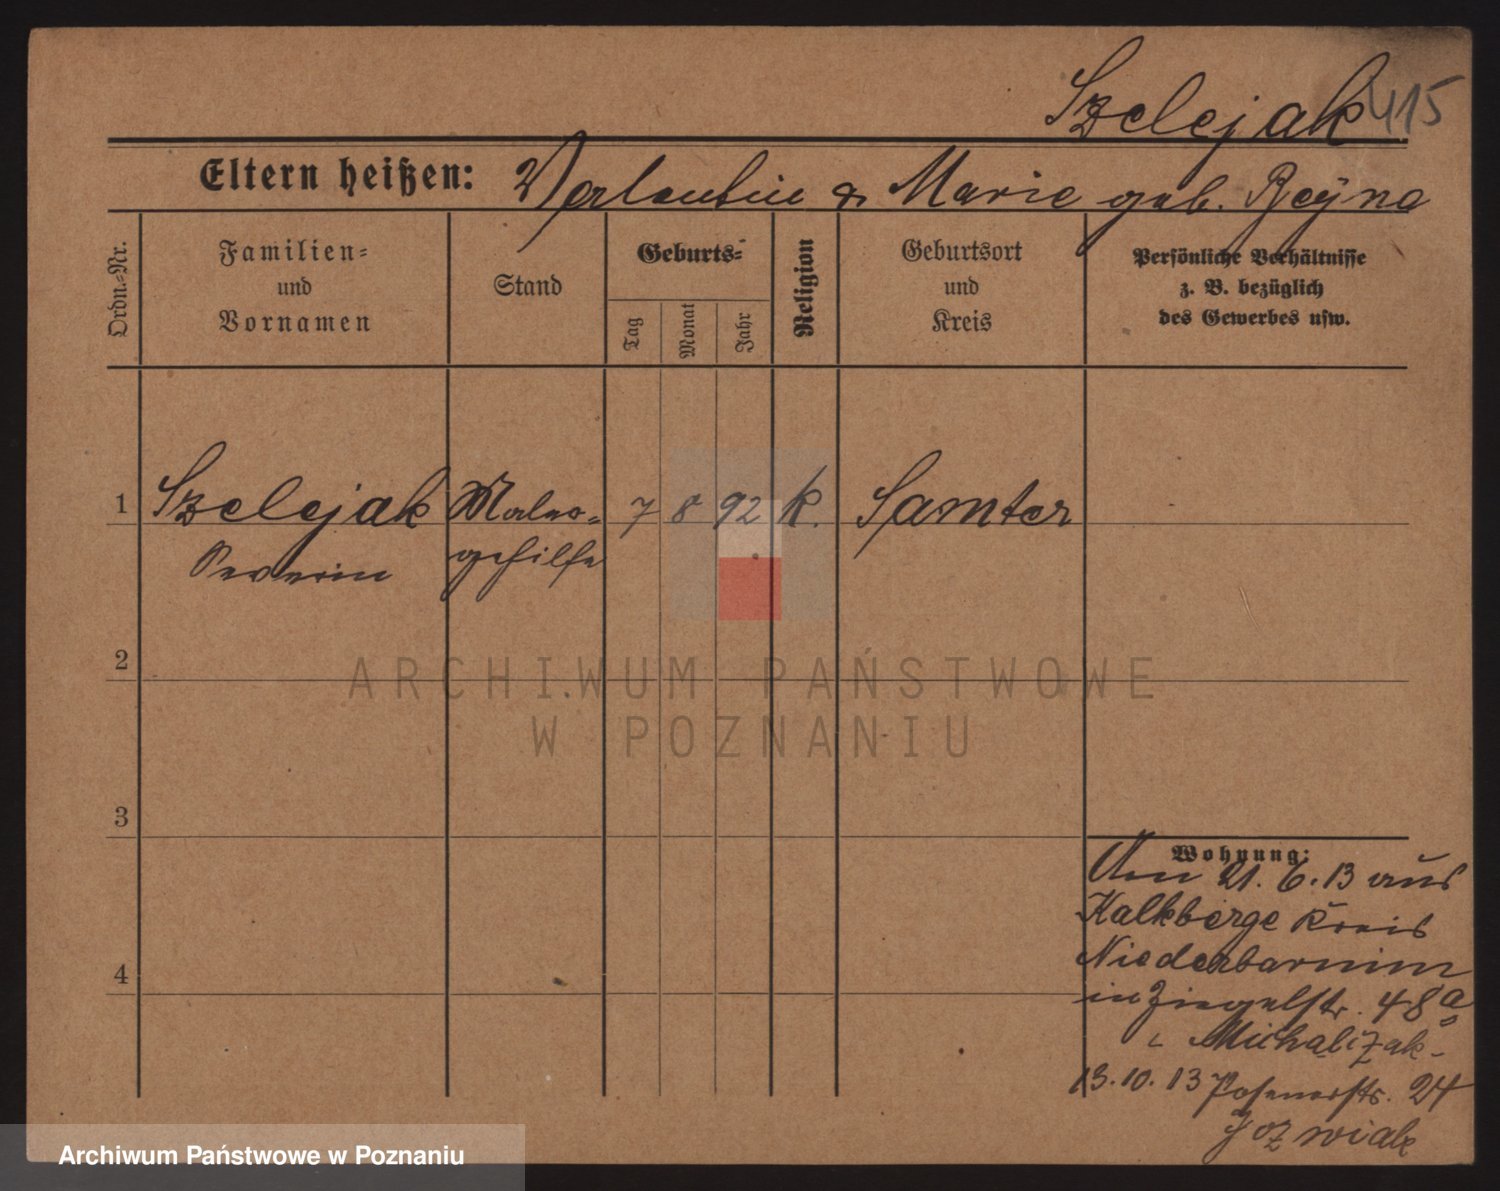 Szelejak 415
Eltern heißen: Valentin & Marie geb. Beyna
Ordn.-Nr.
Familien-
und
Vornamen
Stand
Geburts-
Tag
Monat
Jahr
Religion
Geburtsort
und
Kreis
Persönliche Verhältnisse
z. B. bezüglich
des Gewerbes usw.
1 Szelejak Maler- 7 8 92 k. Samter
Severin gehilfe
2
ARCHIWUM PAŃSTWOWE
W POZNANIU
3
Wohnung:
Am 21. 6. 13 aus
Kalkberge Kreis
Niederbarnim
4
in Ziegelstr. 48a
Michalizak
13. 10. 13 Posenerstr. 24
Jozwiak
Archiwum Państwowe w Poznaniu